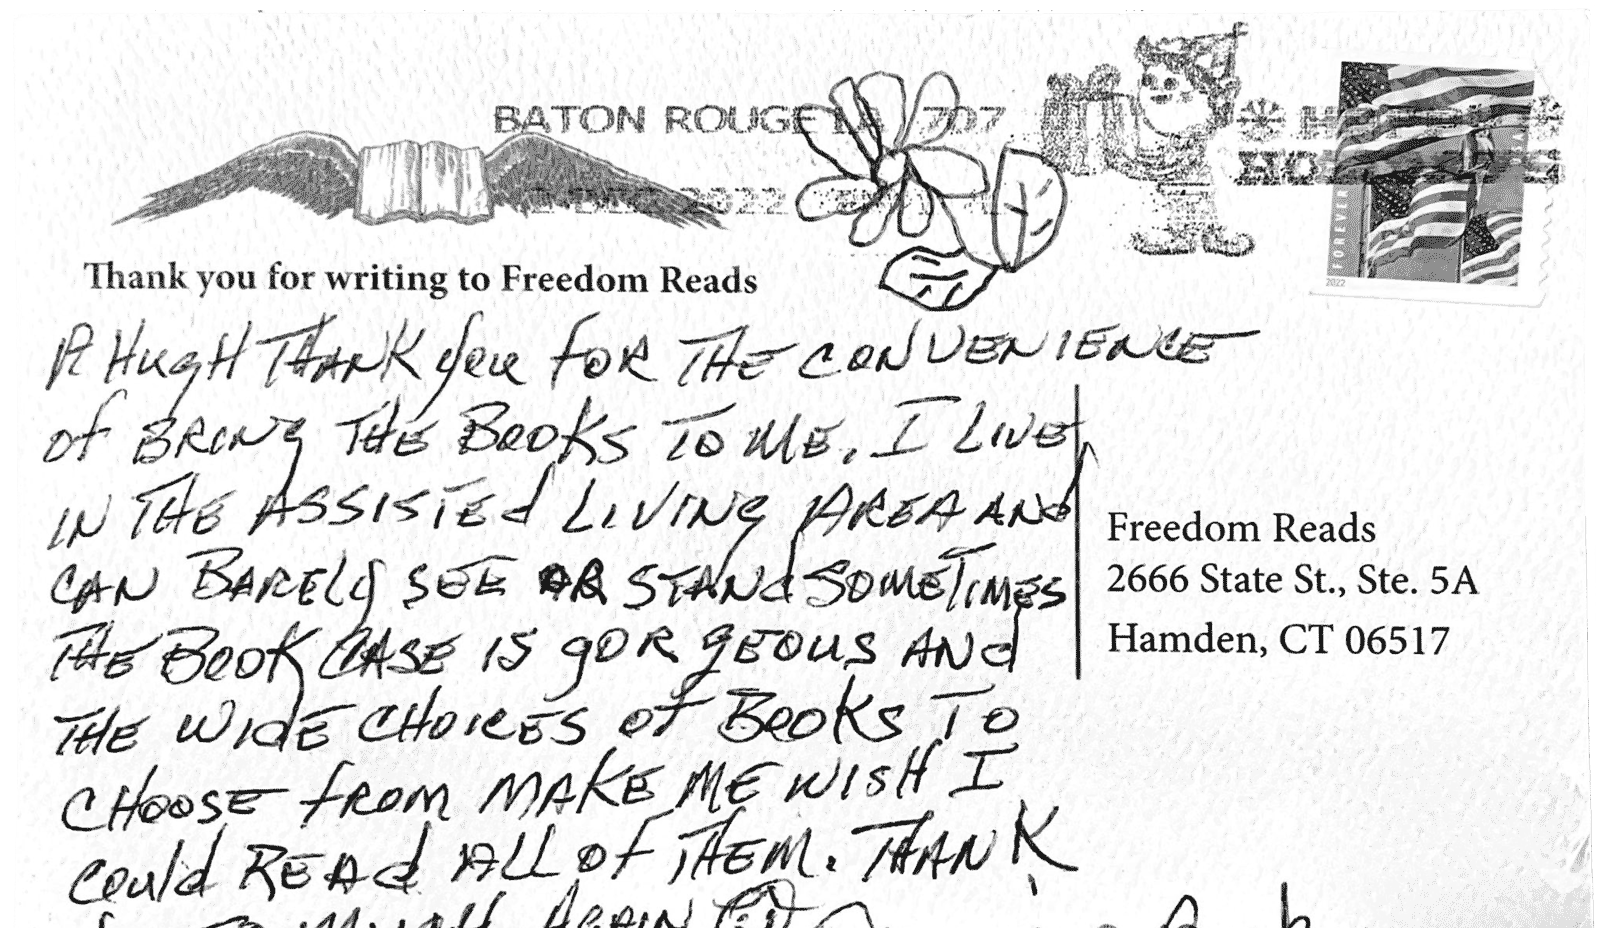 BATON ROUGE LA 707
DEC 2022
FOREVER
2022
Thank you for writing to Freedom Reads
A HugH THANK you FOR THE CONVENIENCE
of BRING THE BOOKS TO ME. I LIVE
IN THE ASSISTEd LIVING AREA AND
CAN BARELy SEE OR STANd SOMETIMES
THE BOOK CASE IS gORgEOUS ANd
THE WIdE CHOICES of BOOKS TO
CHOOSE fROM MAKE ME WISH I
Could REAd ALL Of THEM. THANK
MUCH AGAIN
Freedom Reads
2666 State St., Ste. 5A
Hamden, CT 06517